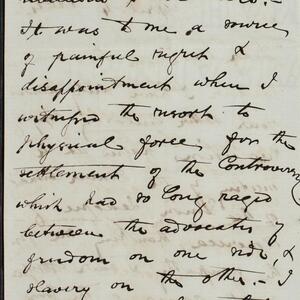 It was to me a source
of painful regret &
disappointment when I
witnessed the resort to
physical force, for the
settlement of the Controversy
which had so long raged
between the advocates of
freedom on one side, &
slavery on the other. — I